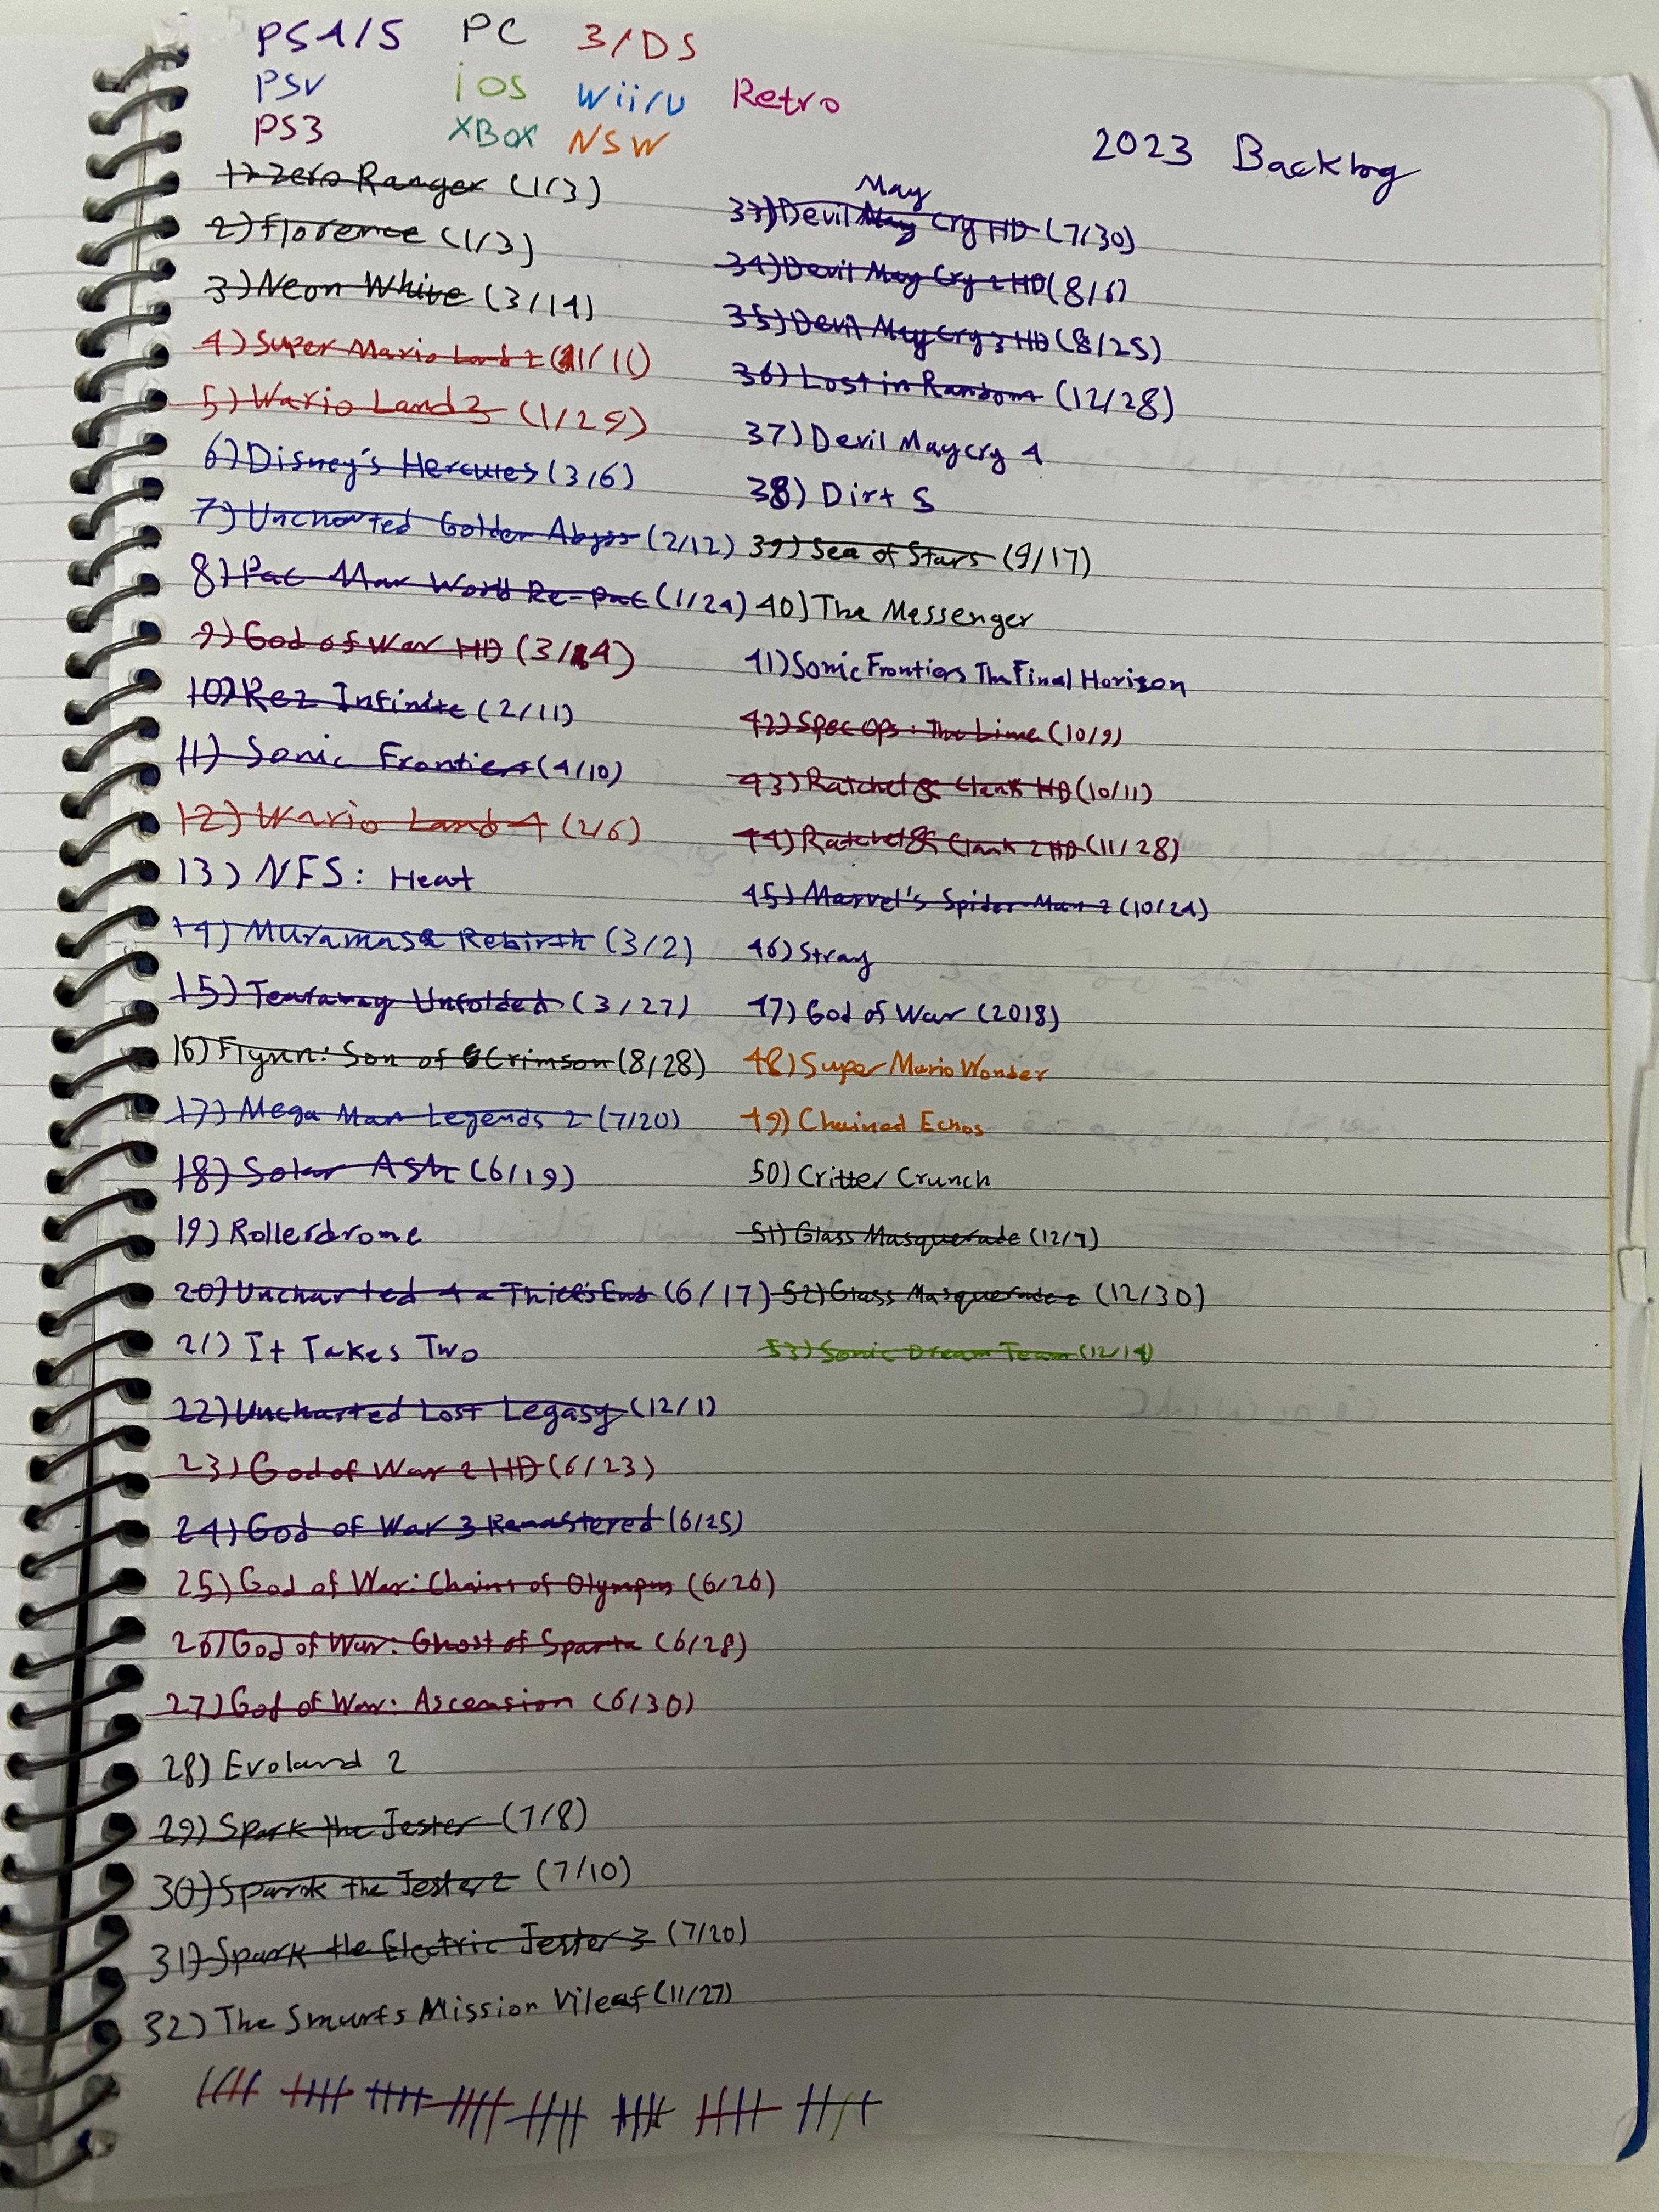 PS4/5 PC 3/DS
PSV iOS Wii/U Retro
PS3 XBOX NSW
2023 Backlog
1) Zero Ranger (1/3)
2) Florence (1/3)
3) Neon White (3/14)
4) Super Mario Land 2 (1/11)
5) Wario Land 3 (1/25)
6) Disney's Hercules (3/6)
7) Uncharted Golden Abyss (2/12)
8) Pac Man World Re-Pac (1/24)
9) God of War HD (3/4)
10) Rez Infinite (2/11)
11) Sonic Frontiers (4/10)
12) Wario Land 4 (2/6)
13) NFS: Heat
14) Muramasa Rebirth (3/2)
15) Tearaway Unfolded (3/27)
16) Flynn: Son of Crimson (8/28)
17) Mega Man Legends 2 (7/20)
18) Solar Ash (6/19)
19) Rollerdrome
20) Uncharted 4 a Thief's End (6/17)
21) It Takes Two
22) Uncharted Lost Legasy (12/1)
23) God of War 2 HD (6/23)
24) God of War 3 Remastered (6/25)
25) God of War: Chains of Olympus (6/26)
26) God of War: Ghost of Sparta (6/28)
27) God of War: Ascension (6/30)
28) Evoland 2
29) Spark the Jester (7/8)
30) Spark the Jester 2 (7/10)
31) Spark the Electric Jester 3 (7/20)
32) The Smurfs Mission Vileaf (11/27)
May
33) Devil May Cry HD (7/30)
34) Devil May Cry 2 HD (8/6)
35) Devil May Cry 3 HD (8/25)
36) Lost in Random (12/28)
37) Devil May cry 4
38) Dirt 5
39) Sea of Stars (9/17)
40) The Messenger
41) Sonic Frontiers The Final Horizon
42) Spec Ops: The Line (10/9)
43) Ratchet & Clank HD (10/11)
44) Ratchet & Clank 2 HD (11/28)
45) Marvel's Spider-Man 2 (10/24)
46) Stray
47) God of War (2018)
48) Super Mario Wonder
49) Chained Echos
50) Critter Crunch
51) Glass Masquerade (12/7)
52) Glass Masquerade 2 (12/30)
53) Sonic Dream Team (12/14)